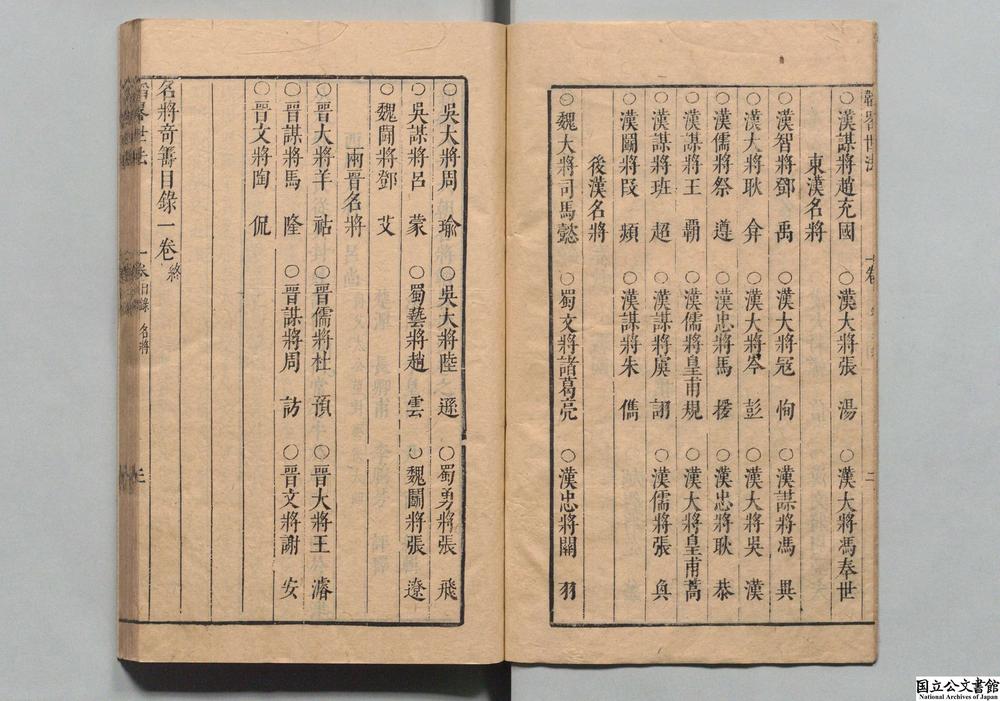 ○漢謀將趙充國 ○漢大將張湯 ○漢大將馮奉世
東漢名將
○漢智將鄧禹 ○漢大將寇恂 ○漢謀將馮異
○漢大將耿弇 ○漢大將岑彭 ○漢大將吳漢
○漢儒將祭遵 ○漢忠將馬援 ○漢忠將耿恭
○漢謀將王霸 ○漢儒將皇甫規 ○漢大將皇甫嵩
○漢謀將班超 ○漢謀將虞詡 ○漢儒將張奐
○漢鬪將段熲 ○漢謀將朱儁
後漢名將
○魏大將司馬懿 ○蜀文將諸葛亮 ○漢忠將關羽
○吳大將周瑜 ○吳大將陸遜 ○蜀勇將張飛
○吳謀將呂蒙 ○蜀藝將趙雲 ○魏鬪將張遼
○魏鬪將鄧艾
兩晉名將
○晉大將羊祜 ○晉儒將杜預 ○晉大將王濬
○晉謀將馬隆 ○晉謀將周訪 ○晉文將謝安
○晉文將陶侃
名將奇籌目錄一卷終
一卷目錄 名將 三
国立公文書館
National Archives of Japan